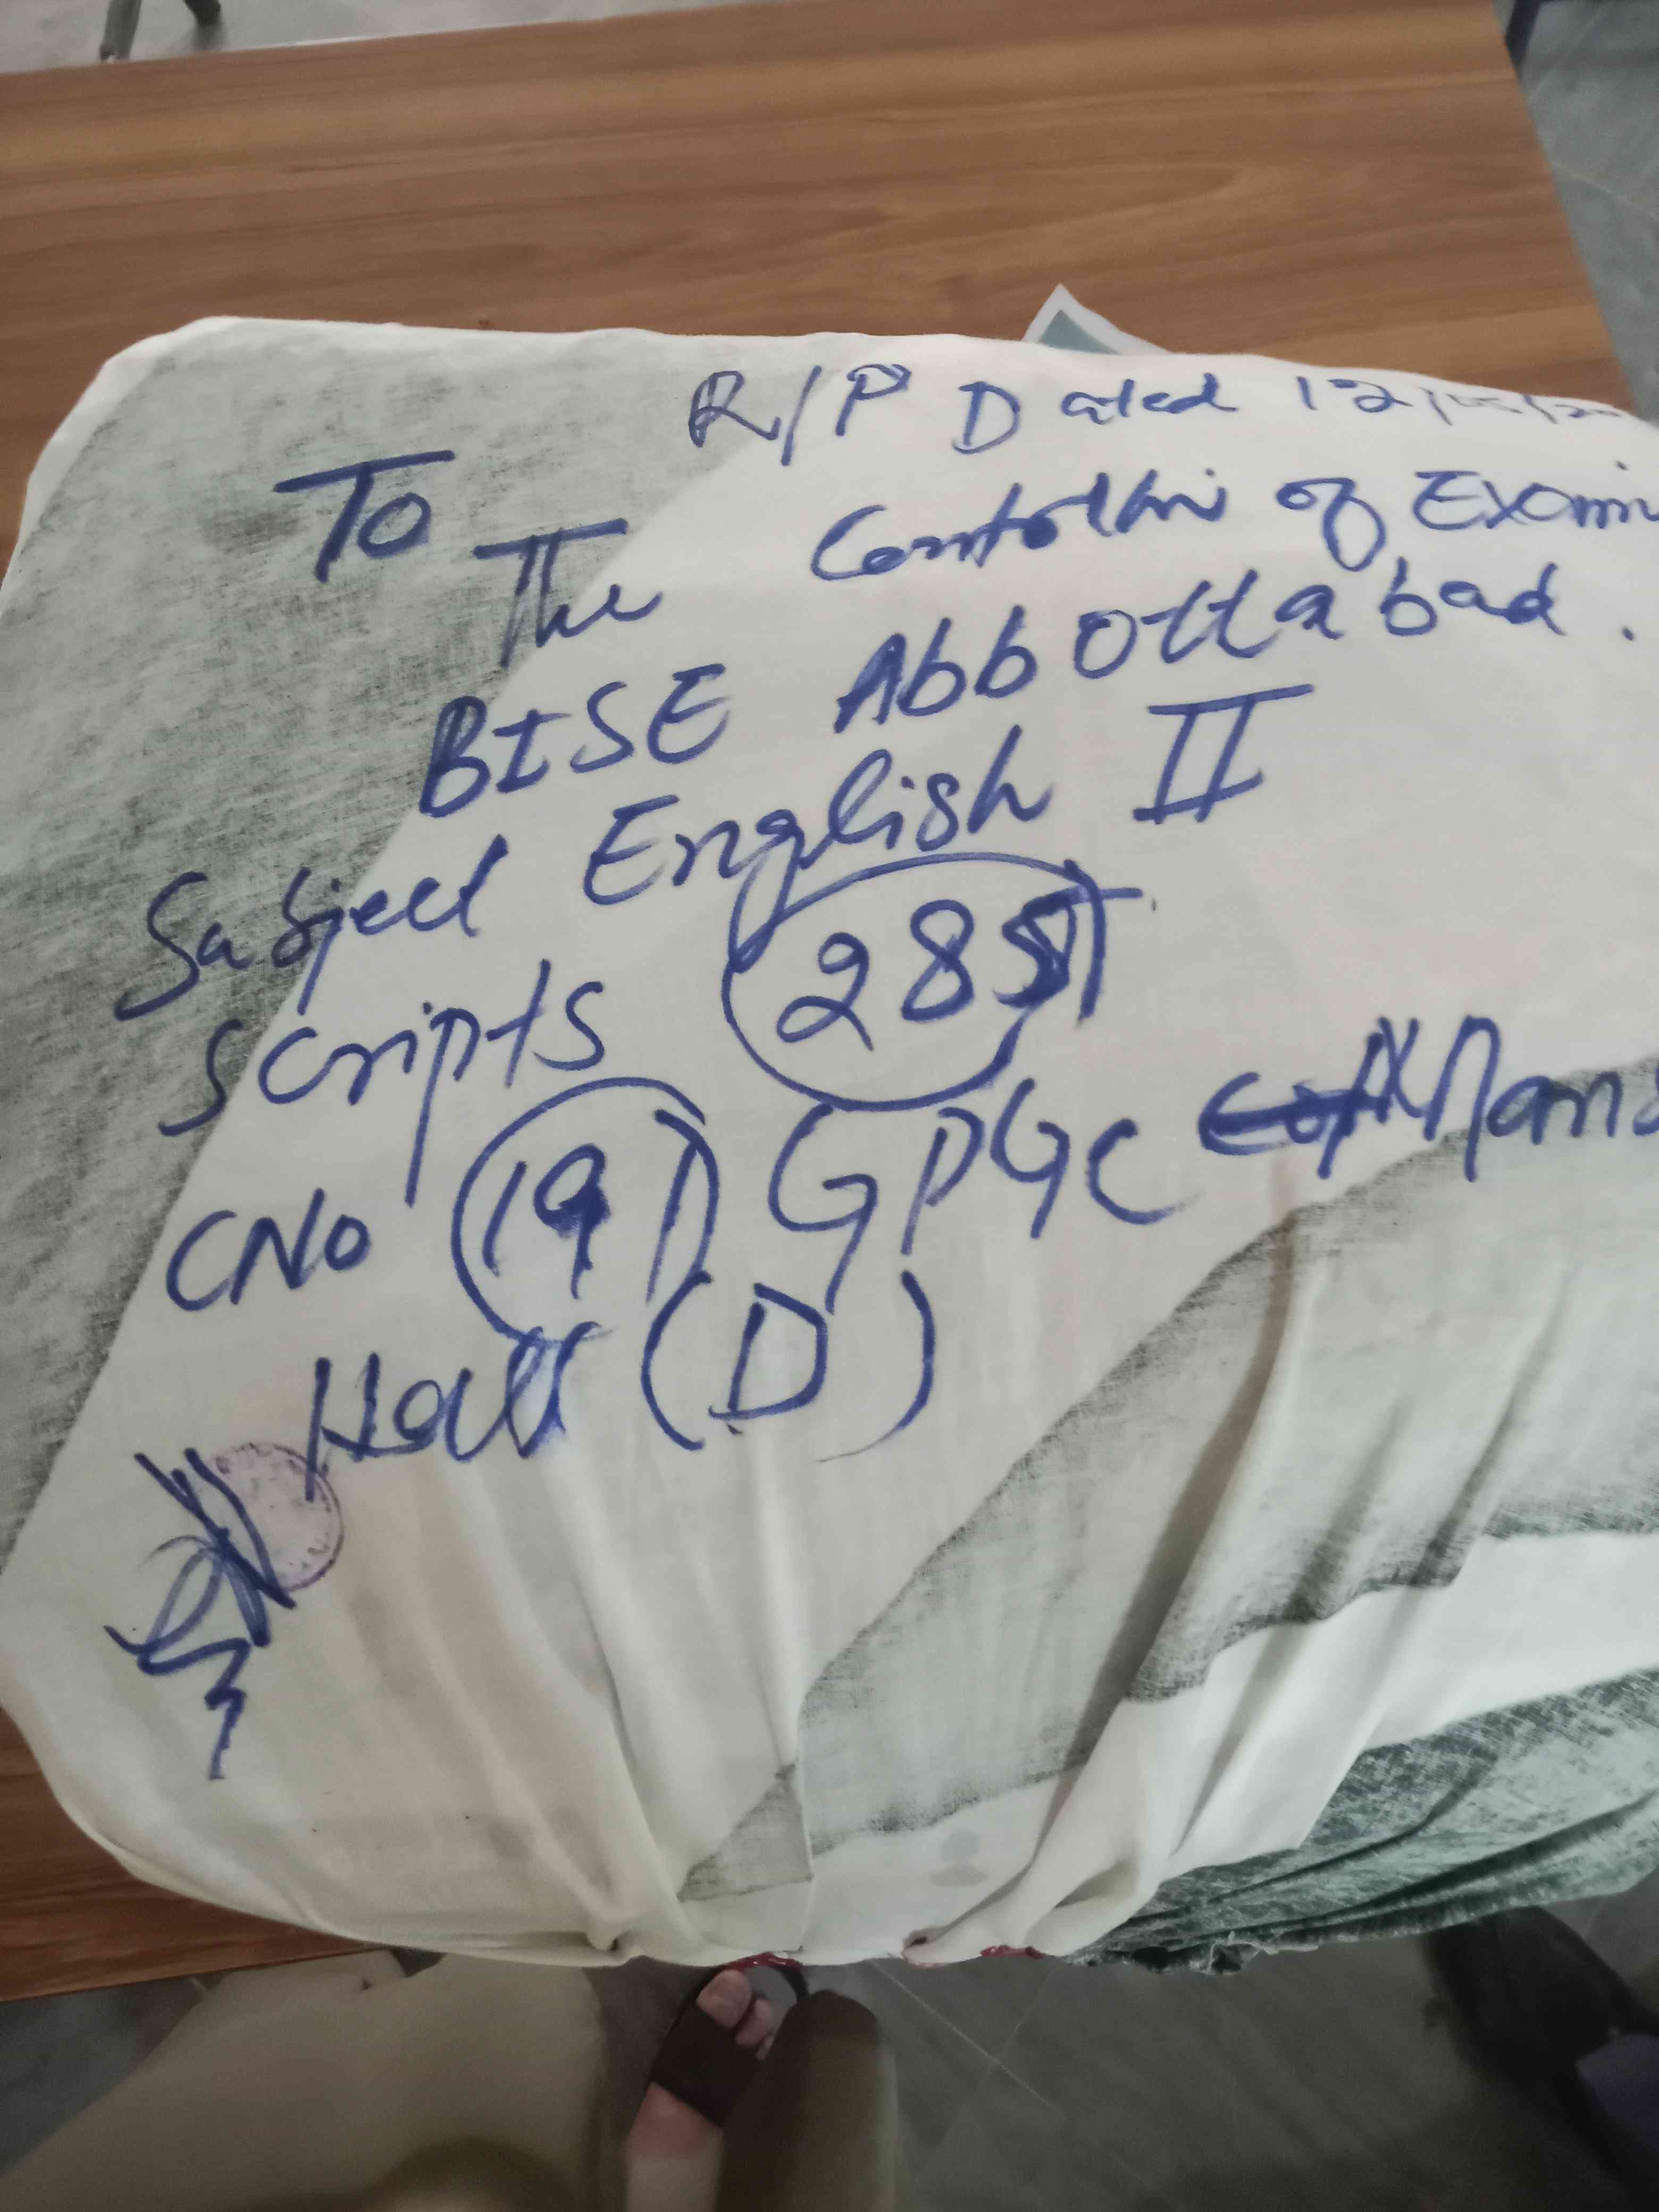 R/P Dated 12/
To
The Controller of Examin
BISE Abbottabad.
Subject English II
Scripts 285
CNo 191 GPGC Mans
Hall (D)